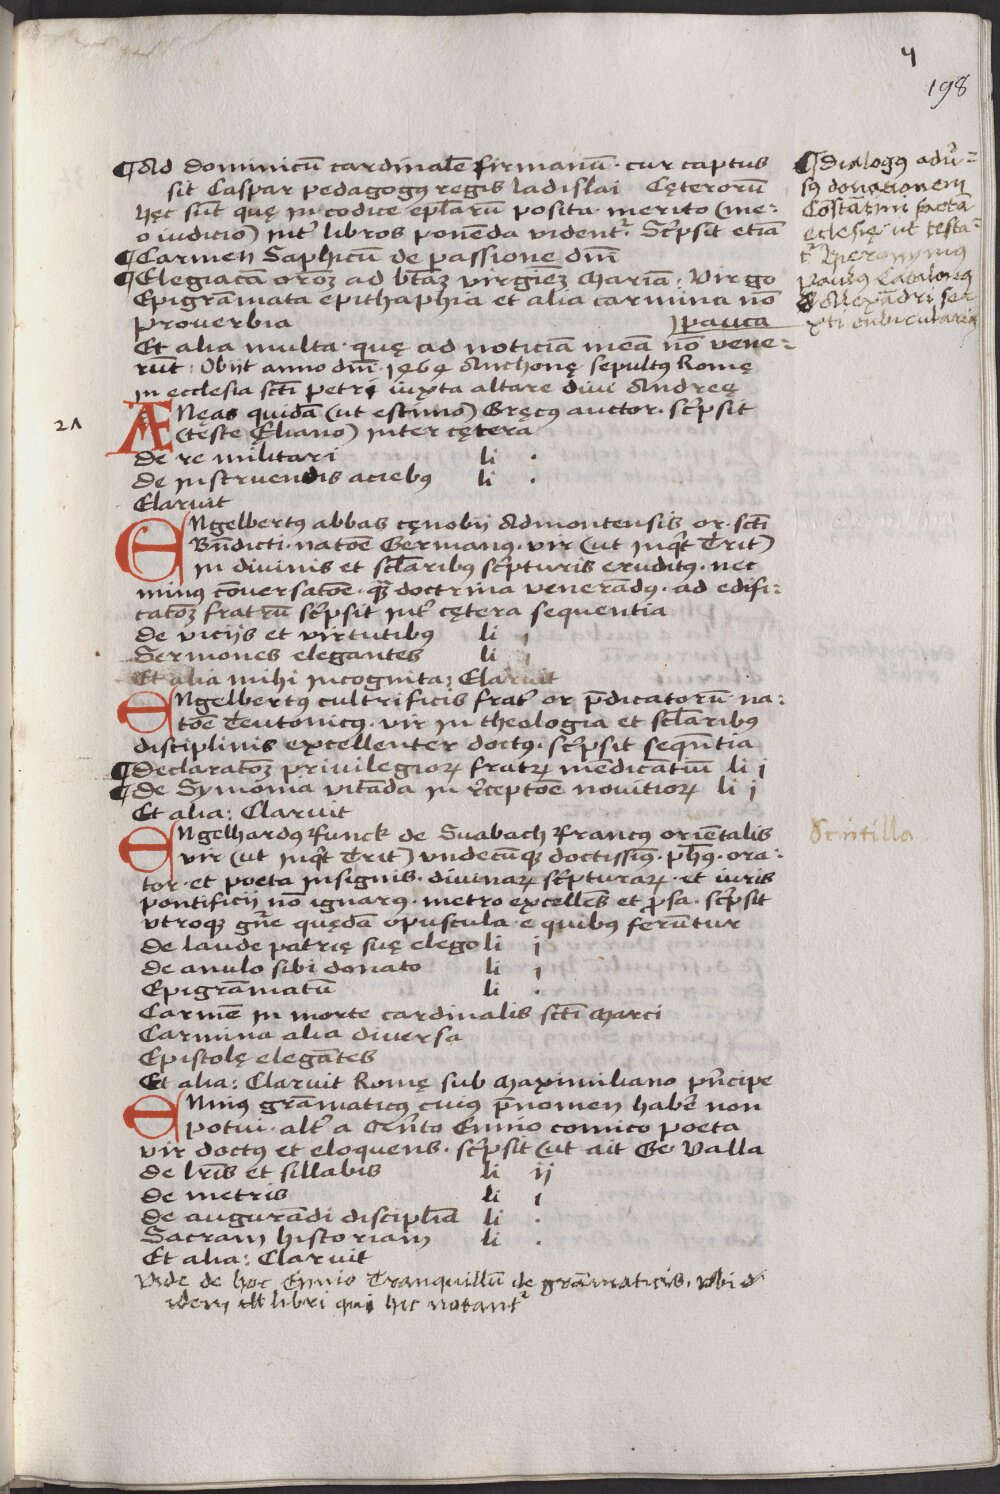 4
198
¶Ad dominicū cardinalē firmanū · cur captus
sit Caspar pedagogꝰ regis ladislai Cęterorū
hęc sūt quę in codice eplarū posita merito (me⸗
o iudicio) intˀ libros ponēda videntˀ. Scˀpsit etiā
¶Carmen Saphicū de passione dnī
¶Elegiacā oroēʒ ad btāʒ virginēʒ Mariā : Virgo
Epigrāmata epithaphia et alia carmina nō
proverbia pauca
Et alia multa · quę ad noticiā meā nō vene⸗
rūt : Obijt anno dnī · 1464 Anchonę sepultꝰ Romę
in ecclesia sctī petri iuxta altare divi Andreę
¶Dialogꝰ adv̄⸗
sꝰ donationem
Cōstātini facta
eclesię ut testa⸗
tˀ Hieronymus
paulus Catalanꝰ
Alexādri sex
xti cubicularius
21
ÆNęas quidā (ut estimo) Gręcꝰ auctor · scˀpsit
(teste Eliano) inter cętera
de re militari li ·
de instruendis aciebꝰ li ·
Claruit
ENgelbertꝰ abbas cęnobij Admontensis or · sctī
Bn̄dicti · natōe Germanꝰ · vir (ut inqt Trit)
in divinis et sclaribꝰ scˀpturis eruditꝰ · nec
minus cōversatōe · qꝫ doctrina venerādꝰ · ad edifi⸗
catōʒ fratrū scˀpsit intˀ cętera sequentia
de viciis et virtutibꝰ li i
Sermones elegantes li i
Et alia mihi incognita; Claruit
ENgelbertꝰ cultrificis fratˀ or p̄dicatorū na⸗
tōe Teutonicꝰ · vir in theologia et sclaribꝰ
disciplinis excellenter doctꝰ · scˀpsit sequētia
¶Declaratōʒ privilegioꝝ fratꝝ mēdicātiū li i
¶de Symonia vitāda in rˀceptōe novitioꝝ li i
Et alia : Claruit
ENgelhardꝰ Funck de Suabach Francꝰ oriētalis
vir (ut inqt Trit) undecūqꝫ doctissimꝰ · phꝰ · ora⸗
tor · et poeta insignis · divinaꝝ scˀpturaꝝ · et iuris
pontificij nō ignarꝰ · metro excellēs et prosa · scˀpsit
utroqꝫ gn̄e quędā opuscula · e quibus ferūtur
de laude patrię suę elego li i
de anulo sibi donato li i
Epigrāmatū li ·
Carmē in morte cardinalis sctī Marci
Carmina alia diversa
Epistolę elegātes
Et alia : Claruit Romę sub Maximiliano pn̄cipe
Scintilla
ENnius grāmaticꝰ cuius p̄nomen habē non
potui · altˀ a Qn̄to Ennio comico poeta
vir doctꝰ et eloquens · scˀpsit (ut ait Ge Valla
de lrīs et sillabis li ij
de metris li i
de augurādi disciplīa li ·
Sacram historiam li ·
Et alia : Claruit
Vide de hoc Ennio Tranquillū de grāmaticis, ubi
idem libri qui hic notantˀ